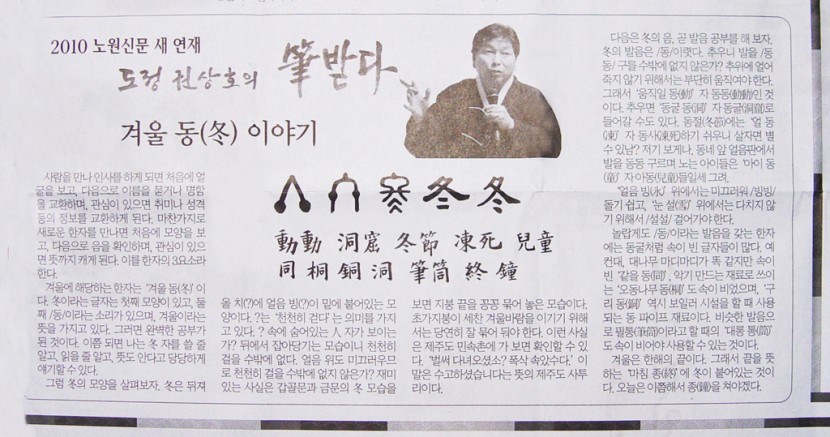 2010 노원신문 새 연재
도정 권상호의 筆받다
겨울 동(冬) 이야기
사람을 만나 인사를 하게 되면 처음에 얼
굴을 보고, 다음으로 이름을 묻거나 명함
을 교환하며, 관심이 있으면 취미나 성격
등의 정보를 교환하게 된다. 마찬가지로
새로운 한자를 만나면 처음에 모양을 보
고, 다음으로 음을 확인하며, 관심이 있으
면 뜻까지 캐게 된다. 이를 한자의 3요소라
한다.
겨울에 해당하는 한자는 '겨울 동(冬)'이
다. 冬이라는 글자는 첫째 모양이 있고, 둘
째 /동/이라는 소리가 있으며, 겨울이라는
뜻을 가지고 있다. 그러면 완벽한 공부가
된 것이다. 이쯤 되면 나는 冬 자를 쓸 줄
알고, 읽을 줄 알고, 뜻도 안다고 당당하게
얘기할 수 있다.
그럼 冬의 모양을 살펴보자. 冬은 뒤져
冬 冬
動動 洞窟 冬節 凍死 兒童
同 桐 銅 洞 筆筒 終 鐘
올 치(?)에 얼음 빙(?)이 밑에 붙어있는 모
양이다. ?는 '천천히 걷다'는 의미를 가지
고 있다. ? 속에 숨어있는 人 자가 보이는
가? 뒤에서 잡아당기는 모습이니 천천히
걸을 수밖에 없다. 얼음 위도 미끄러우므
로 천천히 걸을 수밖에 없지 않은가? 재미
있는 사실은 갑골문과 금문의 冬 모습을
보면 지붕 끝을 꽁꽁 묶어 놓은 모습이다.
초가지붕이 세찬 겨울바람을 이기기 위해
서는 당연히 잘 묶어 둬야 한다. 이런 사실
은 제주도 민속촌에 가 보면 확인할 수 있
다. "벌써 다녀오셨소? 폭삭 속았수다." 이
말은 수고하셨습니다는 뜻의 제주도 사투
리이다.
다음은 冬의 음, 곧 발음 공부를 해 보자.
冬의 발음은 /동/이렷다. 추우니 발을 /동
동/ 구를 수밖에 없지 않은가? 추위에 얼어
죽지 않기 위해서는 부단히 움직여야 한다.
그래서 '움직일 동(動)' 자 동동(動動)인 것
이다. 추우면 '동굴 동(洞)' 자 동굴(洞窟)로
들어갈 수도 있다. 동절(冬節)에는 '얼 동
(凍)' 자 동사(凍死)하기 쉬우니 살자면 별
수 있남? 저기 보게나, 동네 앞 얼음판에서
발을 동동 구르며 노는 아이들은 '아이 동
(童)' 자 아동(兒童)들일세 그려.
'얼음 빙(氷)' 위에서는 미끄러워 /빙빙/
돌기 쉽고, '눈 설(雪)' 위에서는 다치지 않
기 위해서 /설설/ 걸어가야 한다.
놀랍게도 /동/이라는 발음을 갖는 한자
에는 동굴처럼 속이 빈 글자들이 많다. 예
컨대, 대나무 마디마디가 똑 같지만 속이
빈 '같을 동(同)', 악기 만드는 재료로 쓰이
는 '오동나무 동(桐)'도 속이 비었으며, '구
리 동(銅)' 역시 보일러 시설을 할 때 사용
되는 동 파이프 재료이다. 비슷한 발음으
로 필통(筆筒)이라고 할 때의 '대롱 통(筒)'
도 속이 비어야 사용할 수 있는 것이다.
겨울은 한해의 끝이다. 그래서 끝을 뜻
하는 '마침 종(終)'에 冬이 붙어있는 것이
다. 오늘은 이쯤해서 종(鐘)을 쳐야겠다.